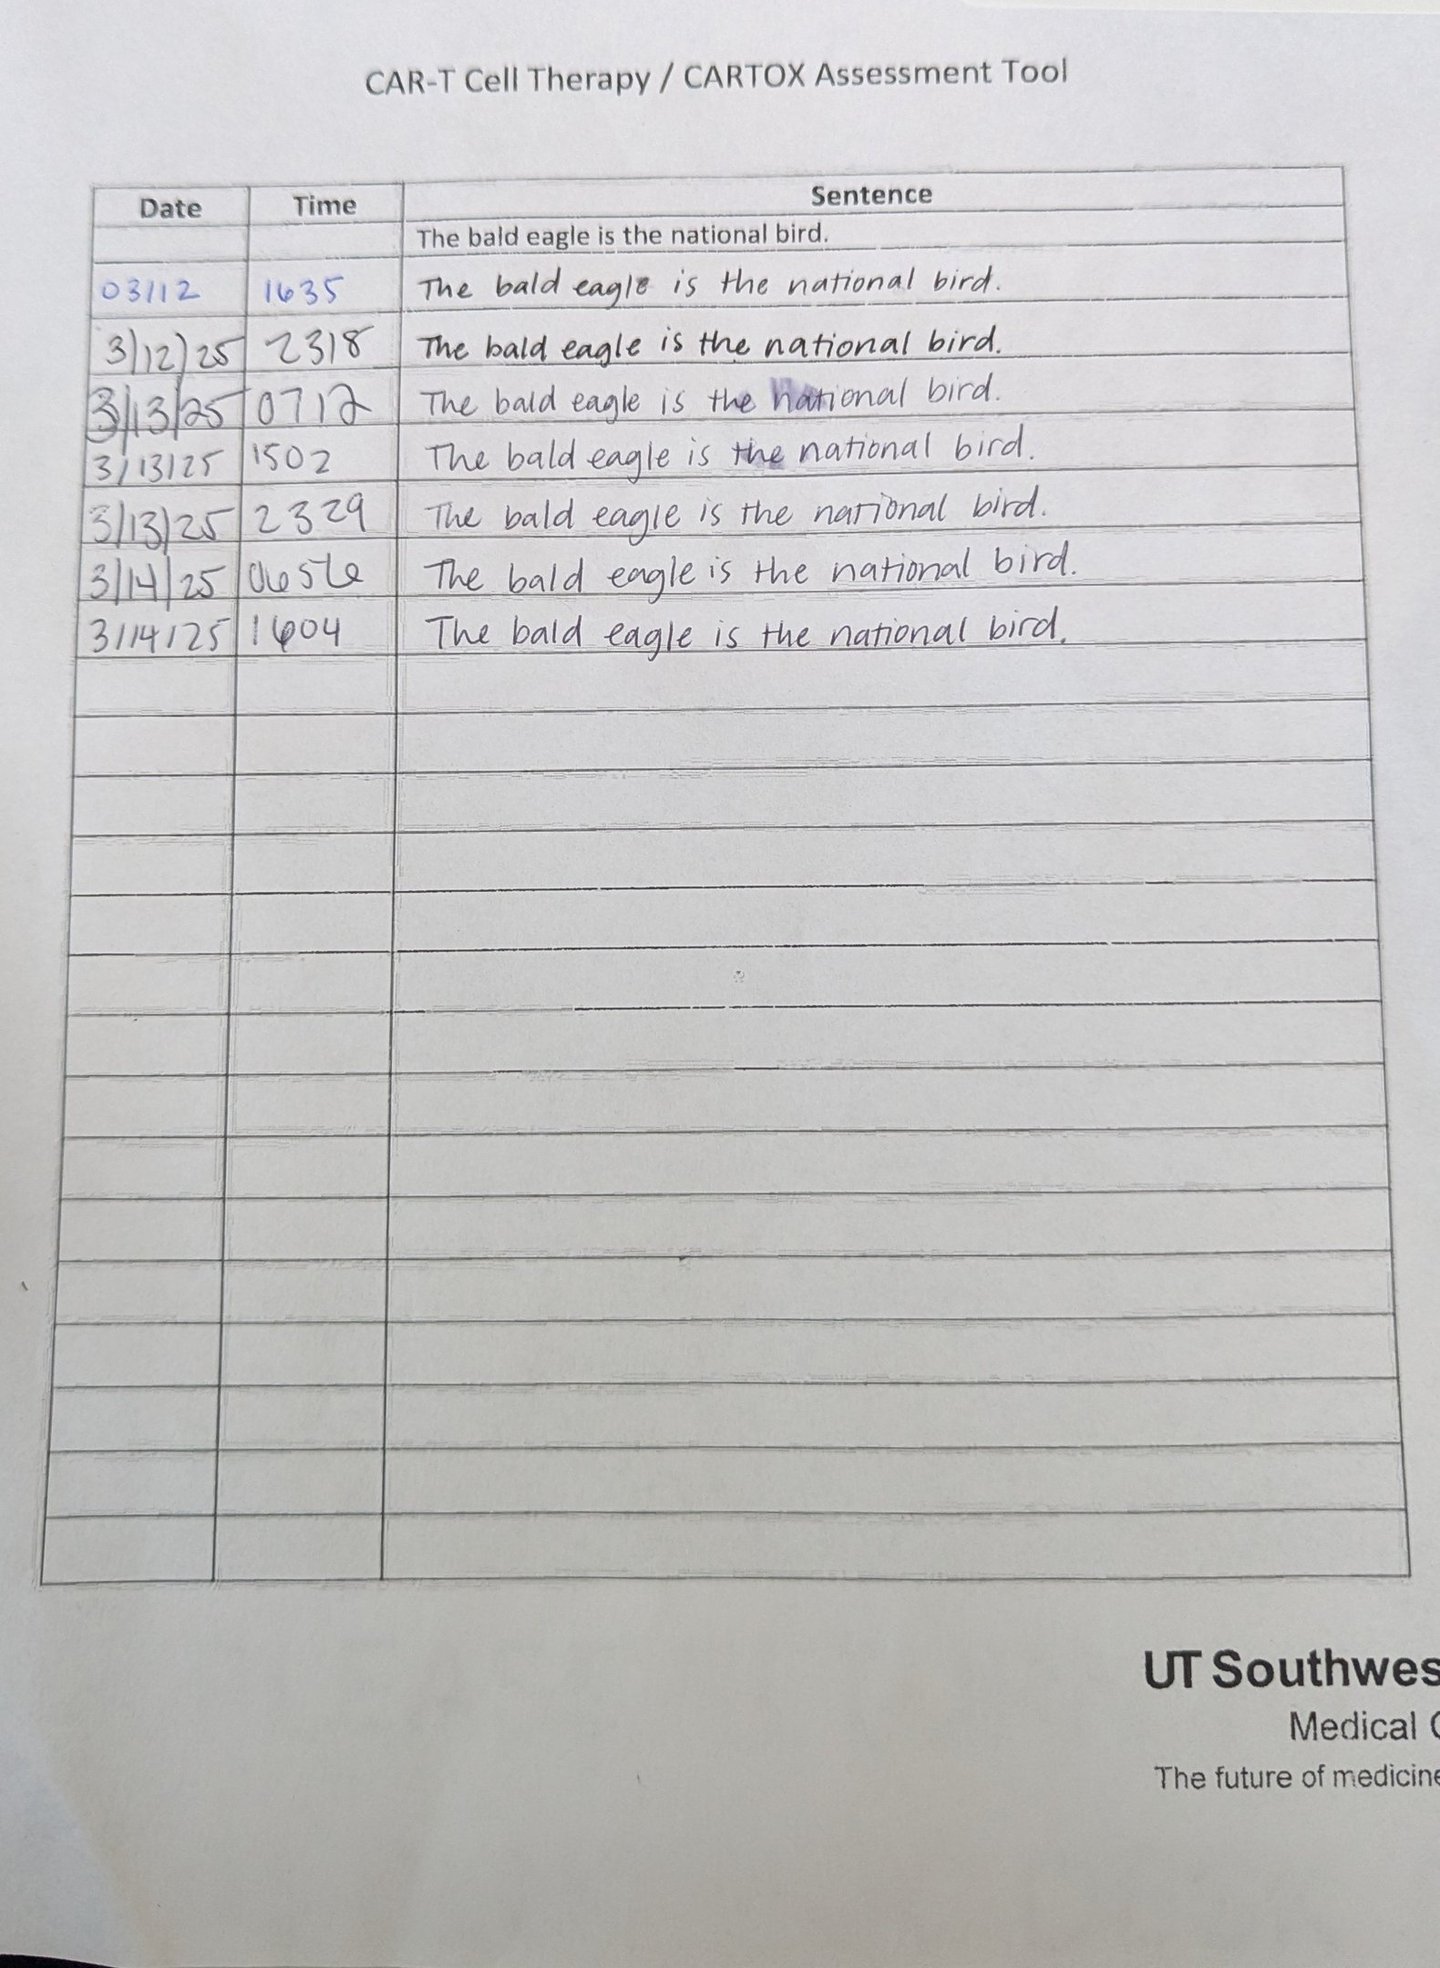 CAR-T Cell Therapy / CARTOX Assessment Tool
Date Time Sentence
The bald eagle is the national bird.
03/12 1635 The bald eagle is the national bird.
3/12/25 2318 The bald eagle is the national bird.
3/13/25 0712 The bald eagle is the national bird.
3/13/25 1502 The bald eagle is the national bird.
3/13/25 2329 The bald eagle is the national bird.
3/14/25 0656 The bald eagle is the national bird.
3/14/25 1604 The bald eagle is the national bird.
UT Southwes
Medical C
The future of medicine